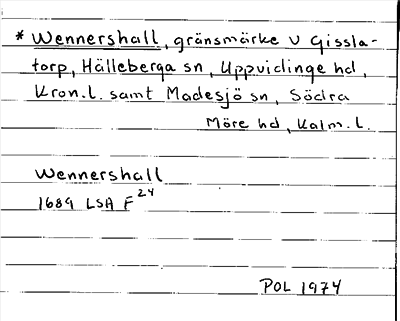 * Wennershall, gränsmärke v Gissla-
torp, Hälleberga sn, Uppvidinge hd,
Kron.l. samt Madesjö sn, Södra
Möre hd, Kalm.l.
Wennershall
1689 LSA F 24
POL 1974